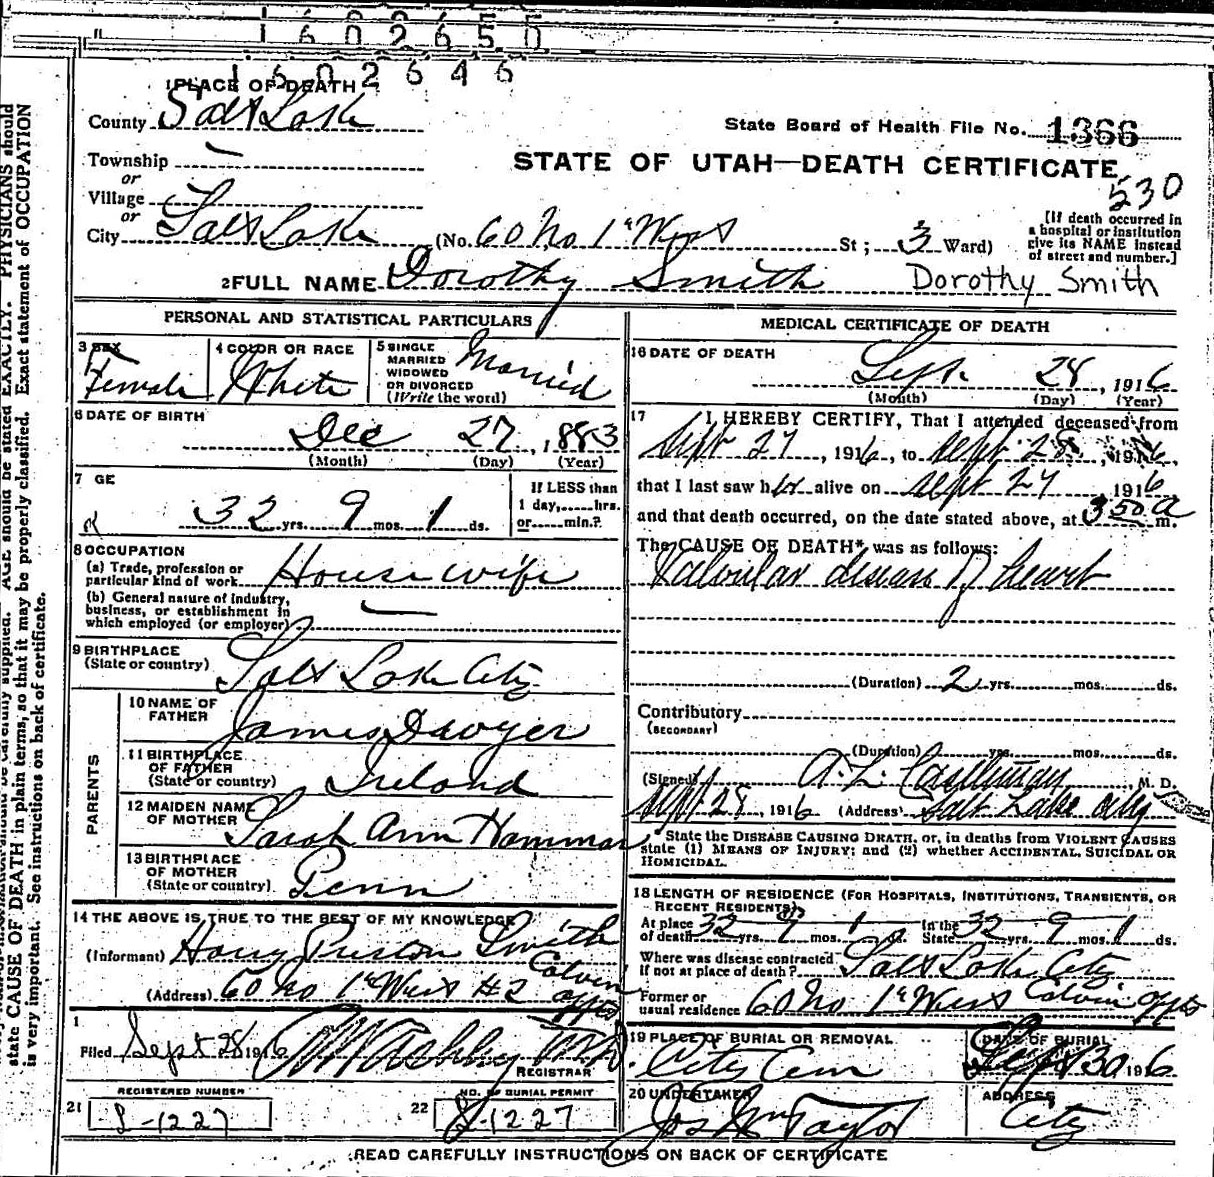 1602650
1602646
1 PLACE OF DEATH
County Salt Lake
State Board of Health File No. 1366
Township —
or
Village
or
STATE OF UTAH—DEATH CERTIFICATE
530
City Salt Lake (No. 60 No 1st West St; 3 Ward)
[If death occurred in a hospital or institution give its NAME instead of street and number.]
2 FULL NAME Dorothy Smith Dorothy Smith
PERSONAL AND STATISTICAL PARTICULARS
3 SEX Female
4 COLOR OR RACE White
5 SINGLE MARRIED WIDOWED OR DIVORCED (Write the word) Married
6 DATE OF BIRTH
Dec 27, 1883
(Month) (Day) (Year)
7 GE
32 yrs. 9 mos. 1 ds.
If LESS than 1 day,......hrs. or......min.?
8 OCCUPATION
(a) Trade, profession or particular kind of work Housewife
(b) General nature of industry, business, or establishment in which employed (or employer) —
9 BIRTHPLACE
(State or country) Salt Lake City
PARENTS
10 NAME OF FATHER James Dwyer
11 BIRTHPLACE OF FATHER (State or country) Ireland
12 MAIDEN NAME OF MOTHER Sarah Ann Hammar
13 BIRTHPLACE OF MOTHER (State or country) Penn
14 THE ABOVE IS TRUE TO THE BEST OF MY KNOWLEDGE
(Informant) Harry Preston Smith
(Address) 60 No 1st West #2 Calvin Appts
Filed Sept 28 1916 Ashby MD
REGISTRAR
REGISTERED NUMBER
21 S-1227
NO. OF BURIAL PERMIT
22 S-1227
MEDICAL CERTIFICATE OF DEATH
16 DATE OF DEATH
Sept. 28, 1916
(Month) (Day) (Year)
17 I, HEREBY CERTIFY, That I attended deceased from
Sept 27, 1916, to Sept 28, 1916,
that I last saw her alive on Sept 27 1916
and that death occurred, on the date stated above, at 3 50 a m.
The CAUSE OF DEATH* was as follows:
Valvular disease of heart
(Duration) 2 yrs. mos. ds.
Contributory
(SECONDARY)
(Duration) yrs. mos. ds.
(Signed) A. L. M. D.
Sept 28, 1916 (Address) Salt Lake City
*State the DISEASE CAUSING DEATH, or, in deaths from VIOLENT CAUSES
state (1) MEANS OF INJURY; and (2) whether ACCIDENTAL, SUICIDAL OR
HOMICIDAL.
18 LENGTH OF RESIDENCE (FOR HOSPITALS, INSTITUTIONS, TRANSIENTS, OR
RECENT RESIDENTS)
At place of death 32 yrs. 9 mos. 1 ds. In the State 32 yrs. 9 mos. 1 ds.
Where was disease contracted if not at place of death? Salt Lake City
Former or usual residence 60 No 1st West Calvin Appts
19 PLACE OF BURIAL OR REMOVAL
City Cem
DATE OF BURIAL
Sept 30 1916
20 UNDERTAKER
Jos Wm Taylor
ADDRESS
City
READ CAREFULLY INSTRUCTIONS ON BACK OF CERTIFICATE
AGE should be stated EXACTLY. PHYSICIANS should
state CAUSE OF DEATH in plain terms, so that it may be properly classified. Exact statement of OCCUPATION
is very important. See instructions on back of certificate.